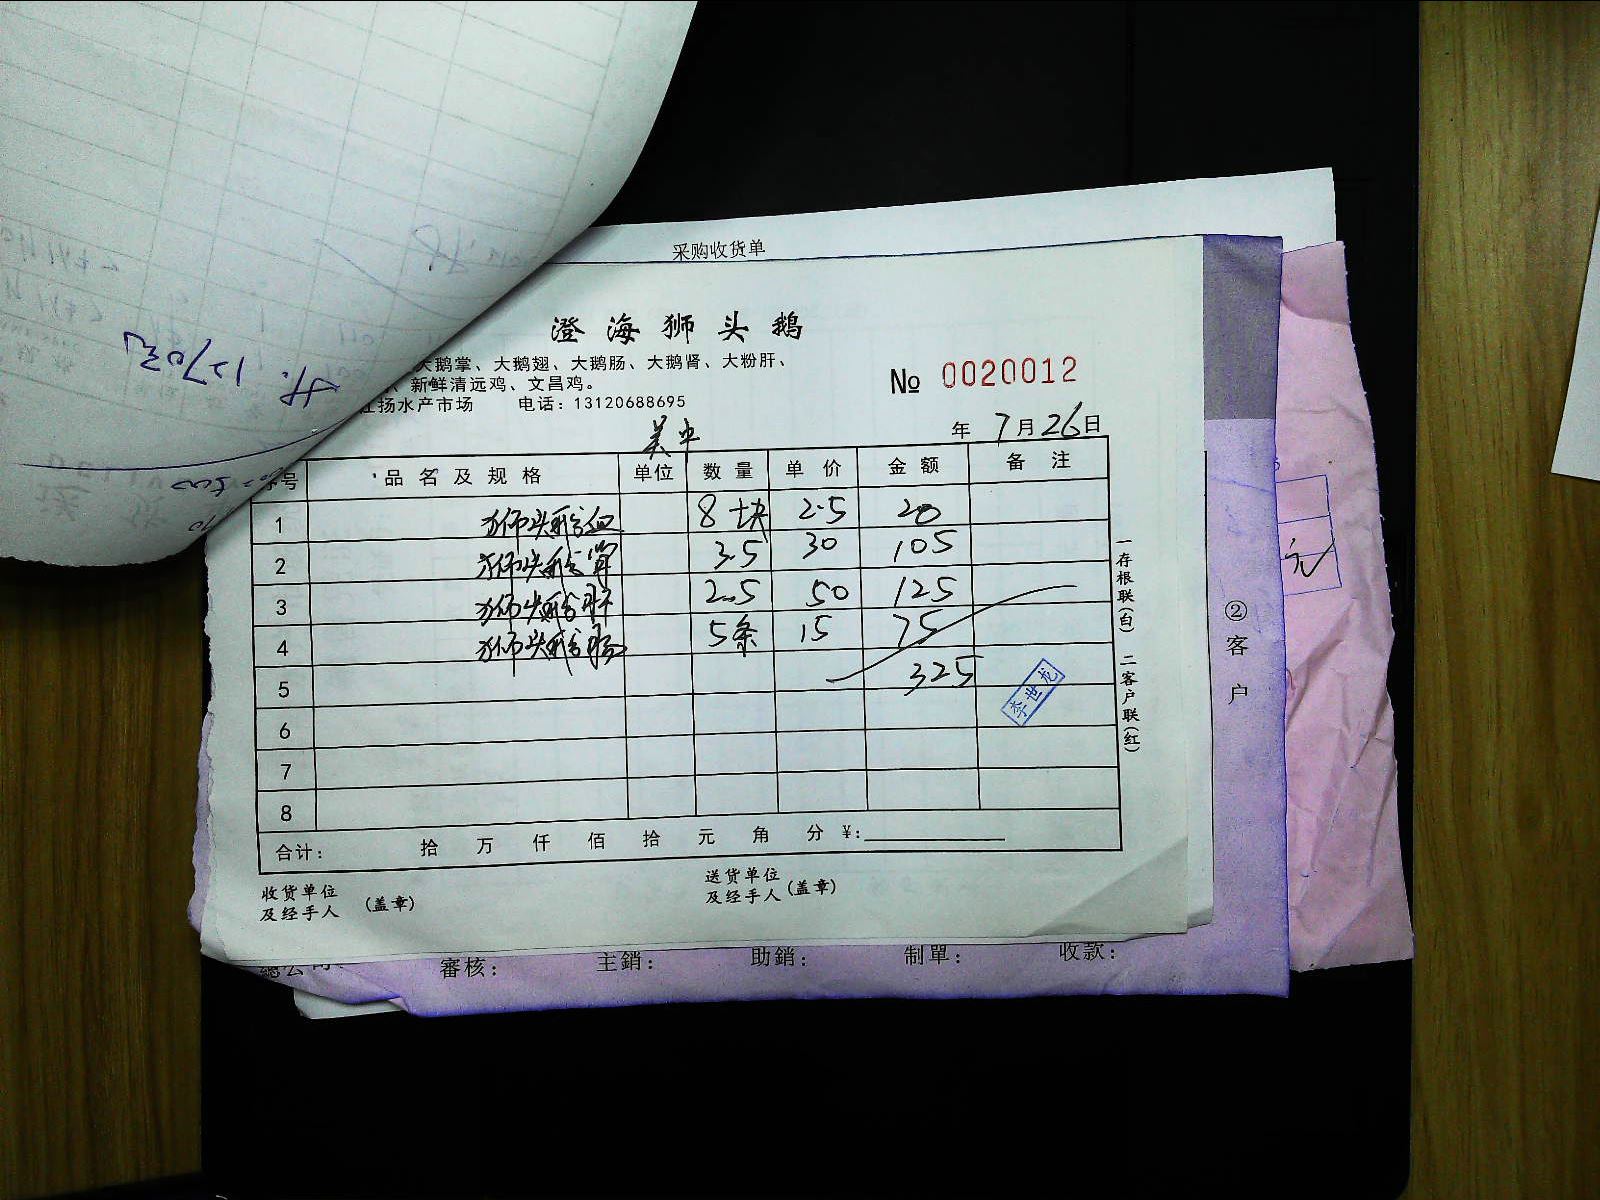 采购收货单
澄海狮头鹅
大鹅掌、大鹅翅、大鹅肠、大鹅肾、大粉肝、
新鲜清远鸡、文昌鸡。
扬水产市场 电话：13120688695
№ 0020012
年 7月26日
序号 品名及规格 单位 数量 单价 金额 备注
1 狮头鹅血 8块 2.5 20
2 狮头鹅 3.5 30 105
3 狮头鹅肝 2.5 50 125
4 狮头鹅肠 5条 15 75
5 325
李世龙
6
7
8
合计： 拾 万 仟 佰 拾 元 角 分 ¥:
收货单位 及经手人 (盖章)
送货单位 及经手人 (盖章)
一存根联(白) 二客户联(红)
②客户
元
總公司
審核： 主銷： 助銷： 制單： 收款：